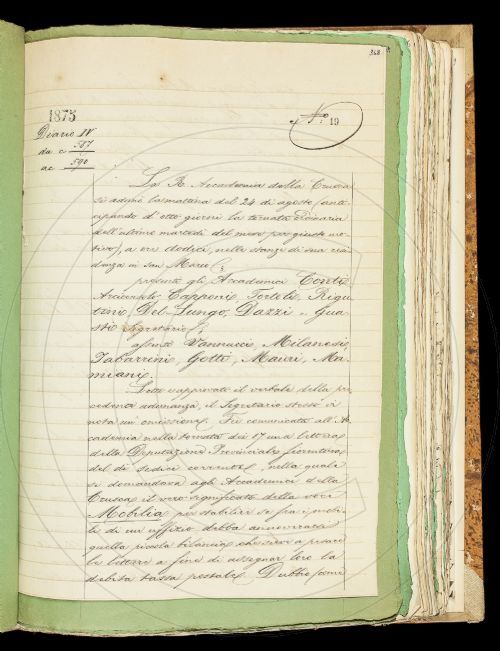 368
1875
N.° 19
Diario IV
da c 587
a c 590
La R. Accademia della Crusca
si adunò la mattina del 24 di agosto (anti-
cipando d'otto giorni la tornata ordinaria
dell'ultimo martedì del mese per giusto mo-
tivo), a ore dodici, nelle stanze di sua resi
denza in San Marco;
presenti gli Accademici Conti
Arciconsolo Capponi, Tortoli, Rigu
tini, Del-Lungo, Dazzi e Gua-
sti segretario;
assenti Vannucci, Milanesi,
Tabarrini, Gotti, Mauri, Ma-
miani.
Letto e approvato il verbale della pre
cedente adunanza, il Segretario stesso vi
nota un'omissione. Fu comunicata all'Ac
cademia nella tornata dei 17 una lettera
della Deputazione Provinciale fiorentina
del dì sedici corrente, nella quale
si domandava agli Accademici della
Crusca il vero significato della voce
Mobilia per stabilire se fra i mobi-
li di un uffizio debba annoverarsi
quella piccola bilancia che serve a pesare
le lettere a fine di assegnar loro la
debita tassa postale. Dubbio